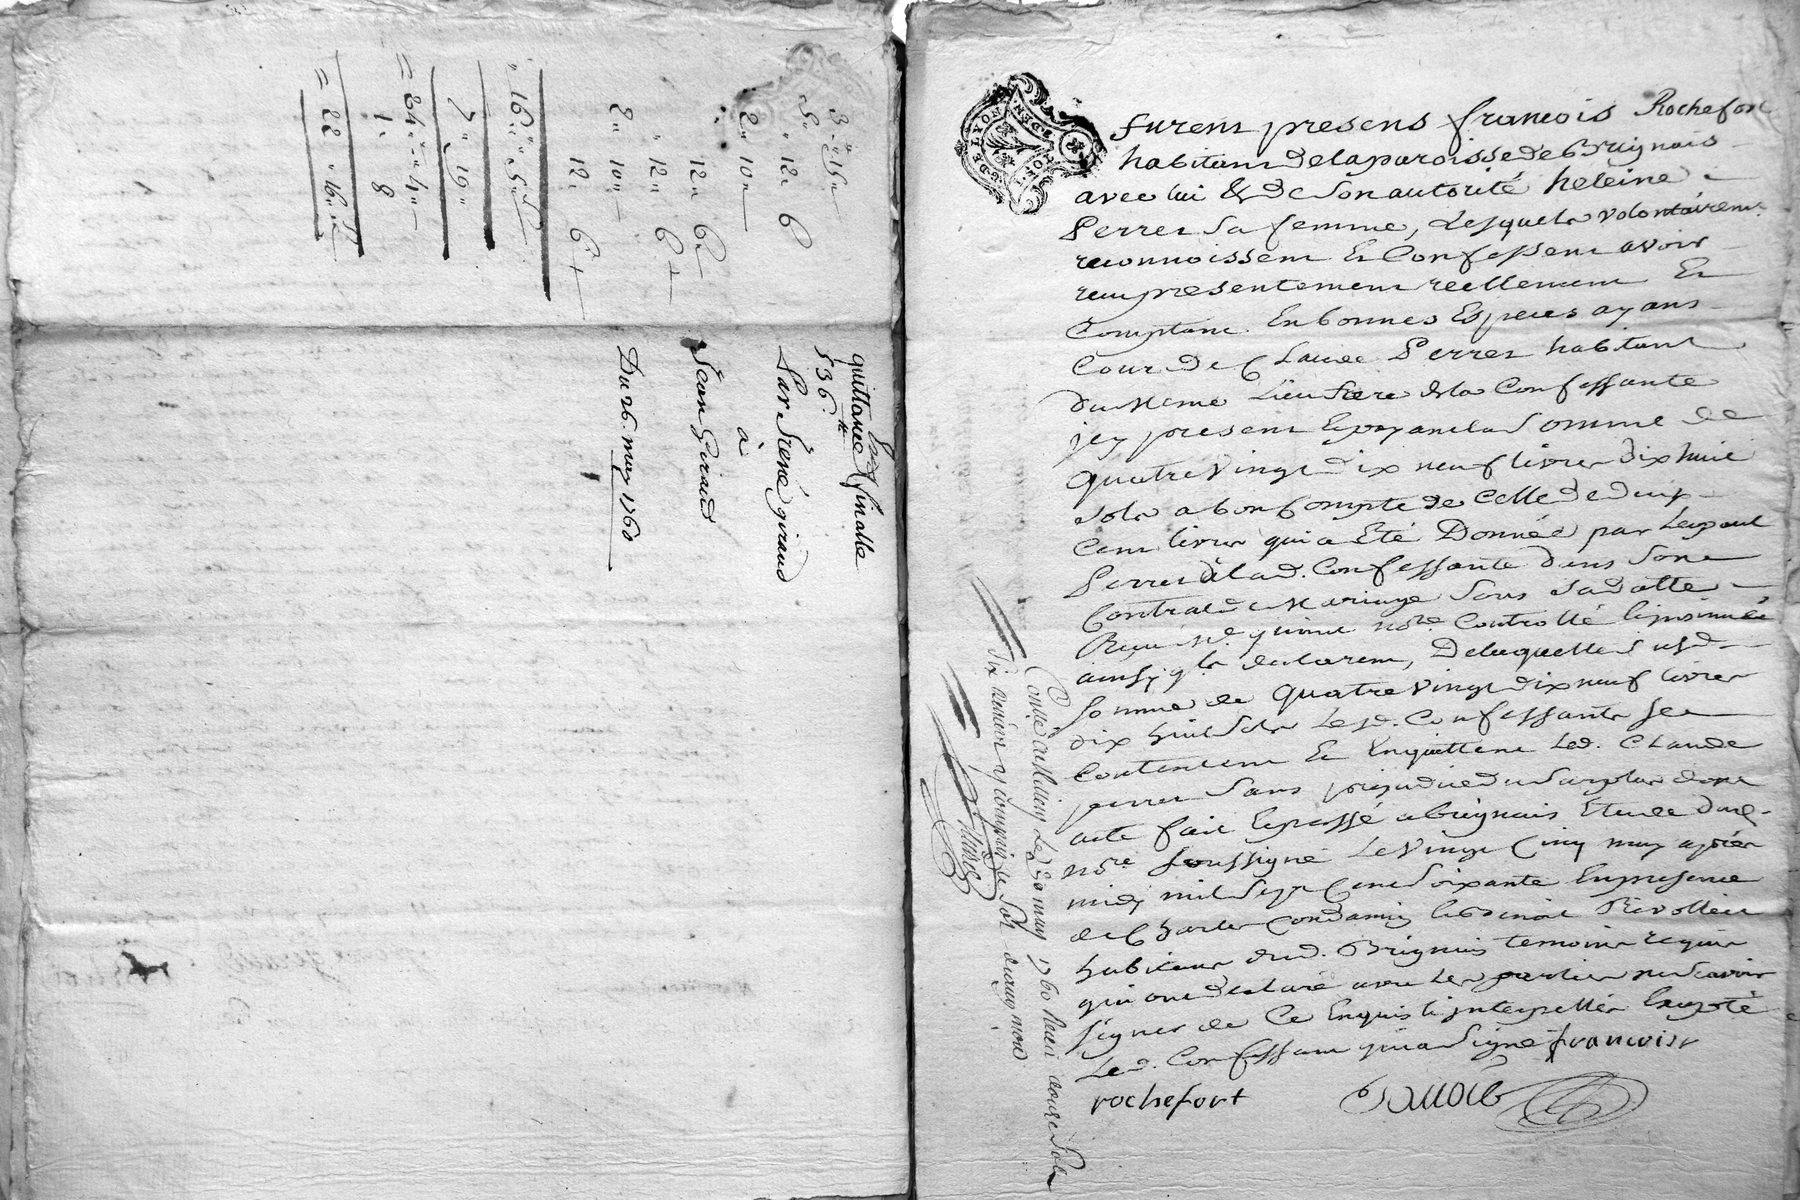 3 " 15 "
5 " 12 " 6
2 " 10 "
12 " 6
12 " 6
2 " 10 "
12 " 6
16 " 5
7 " 19 "
= 24 " 4 "
1 " 8
= 22 " 16 "
quittance finalle
536 ₶
Par Irené giraud
à
Jean Giraud
Du 26. may 1760
GEN. DE LYON
furent presens francois Rochefort
habitant de la paroisse de Brignais
avec lui & de son autorité heleine
Perret sa femme, Lesquels volontairemt.
reconnoissent Et Confessent avoir
reçu presentement reellement Et
Comptant En bonnes Especes ayans
Cour de Claude Perret habitant
du meme Lieu frere de la Confessante
jcy present Et payant la Somme de
quatre vingt dix neuf livres dix huit
sols a bon Compte de Celle de deux
Cent livres qui a Eté Donnée par Led. Claude
Perret à lad. Confessante dans Son
Contrat de Mariage Sous Sa datte
Reçu Me. notre. Controllé Et jnsinué
ainsy qls declarent, De laquelle susd.
Somme de quatre vingt dix neuf livres
dix huit Sols Lesd. Confessants Se
Contentent Et Enquittent Led. Claude
perret Sans prejudice du Surplus dont
acte fait Et passé a brignais Etude dud.
notre Soussigné Le Vingt Cinq may après
midy mil Sept Cent Soixante En presence
de Charles Condamin Et benoit Revollier
habitans dud. Brignais temoins requis
qui ont declaré avec les parties ne Scavoir
signer de Ce Enquis Et jnterpellés Excepté
Led. Confessant qui a Signé francois
rochefort
Conlé a Milleny Le 30 may 1760 Reçu douze Sols
Six deniers y compris le Sol duray nord